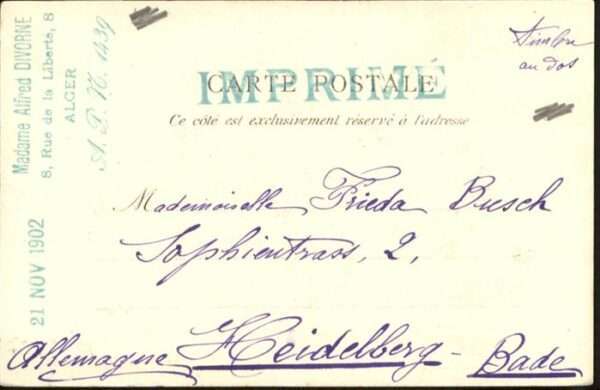 Madame Alfred DIVORNE
8, Rue de la Liberté, 8
ALGER
A. P. N. 1439
21 NOV 1902
Timbre
au dos
IMPRIMÉ
CARTE POSTALE
Ce côté est exclusivement réservé à l'adresse
Mademoiselle Frieda Busch
Sophientrass, 2,
Heidelberg - Bade
Allemagne